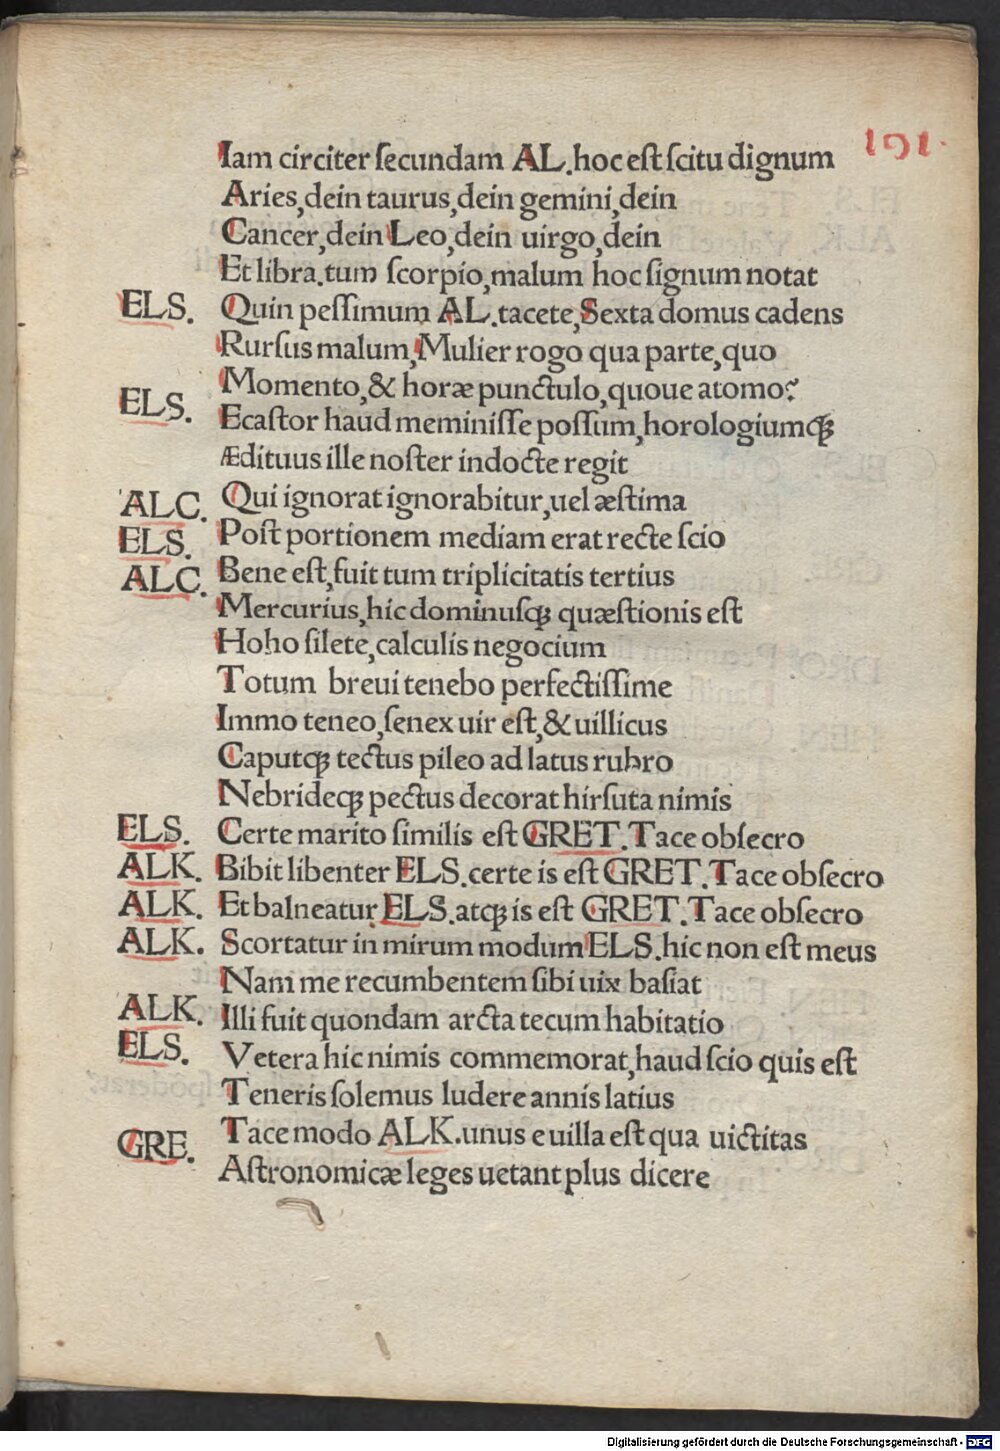 191.
Iam circiter ſecundam AL. hoc eſt ſcitu dignum
Aries, dein taurus, dein gemini, dein
Cancer, dein Leo, dein uirgo, dein
Et libra. tum ſcorpio, malum hoc ſignum notat
ELS. Quin peſſimum AL. tacete, Sexta domus cadens
Rurſus malum, Mulier rogo qua parte, quo
Momento, & horæ punctulo, quoue atomo?
ELS. Ecaſtor haud meminiſſe poſſum, horologiumqꝫ
Ædituus ille noſter indocte regit
ALC. Qui ignorat ignorabitur, uel æſtima
ELS. Poſt portionem mediam erat recte ſcio
ALC. Bene eſt, fuit tum triplicitatis tertius
Mercurius, hic dominuſqꝫ quæſtionis eſt
Hoho ſilete, calculis negocium
Totum breui tenebo perfectiſſime
Immo teneo, ſenex uir eſt, & uillicus
Caputqꝫ tectus pileo ad latus rubro
Nebrideqꝫ pectus decorat hirſuta nimis
ELS. Certe marito ſimilis eſt GRET. Tace obſecro
ALK. Bibit libenter ELS. certe is eſt GRET. Tace obſecro
ALK. Et balneatur ELS. atqꝫ is eſt GRET. Tace obſecro
ALK. Scortatur in mirum modum ELS. hic non eſt meus
Nam me recumbentem ſibi uix baſiat
ALK. Illi fuit quondam arcta tecum habitatio
ELS. Vetera hic nimis commemorat, haud ſcio quis eſt
Teneris ſolemus ludere annis latius
Tace modo ALK. unus e uilla eſt qua uictitas
GRE. Aſtronomicæ leges uetant plus dicere
Digitalisierung gefördert durch die Deutsche Forschungsgemeinschaft - DFG